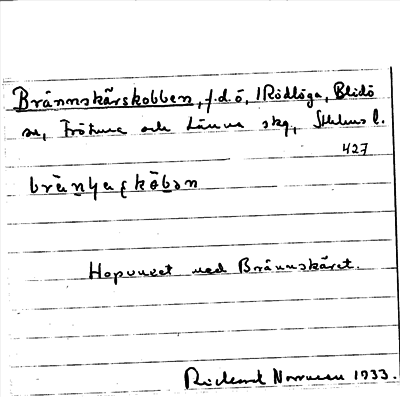 Brännskärskobben, f.d.ö, i Rödlöga, Blidö
sn, Frötuna och Länna skg, Sthlms l.
427
Hopvuxet med Brännskäret.
Rickard Norrman 1933.